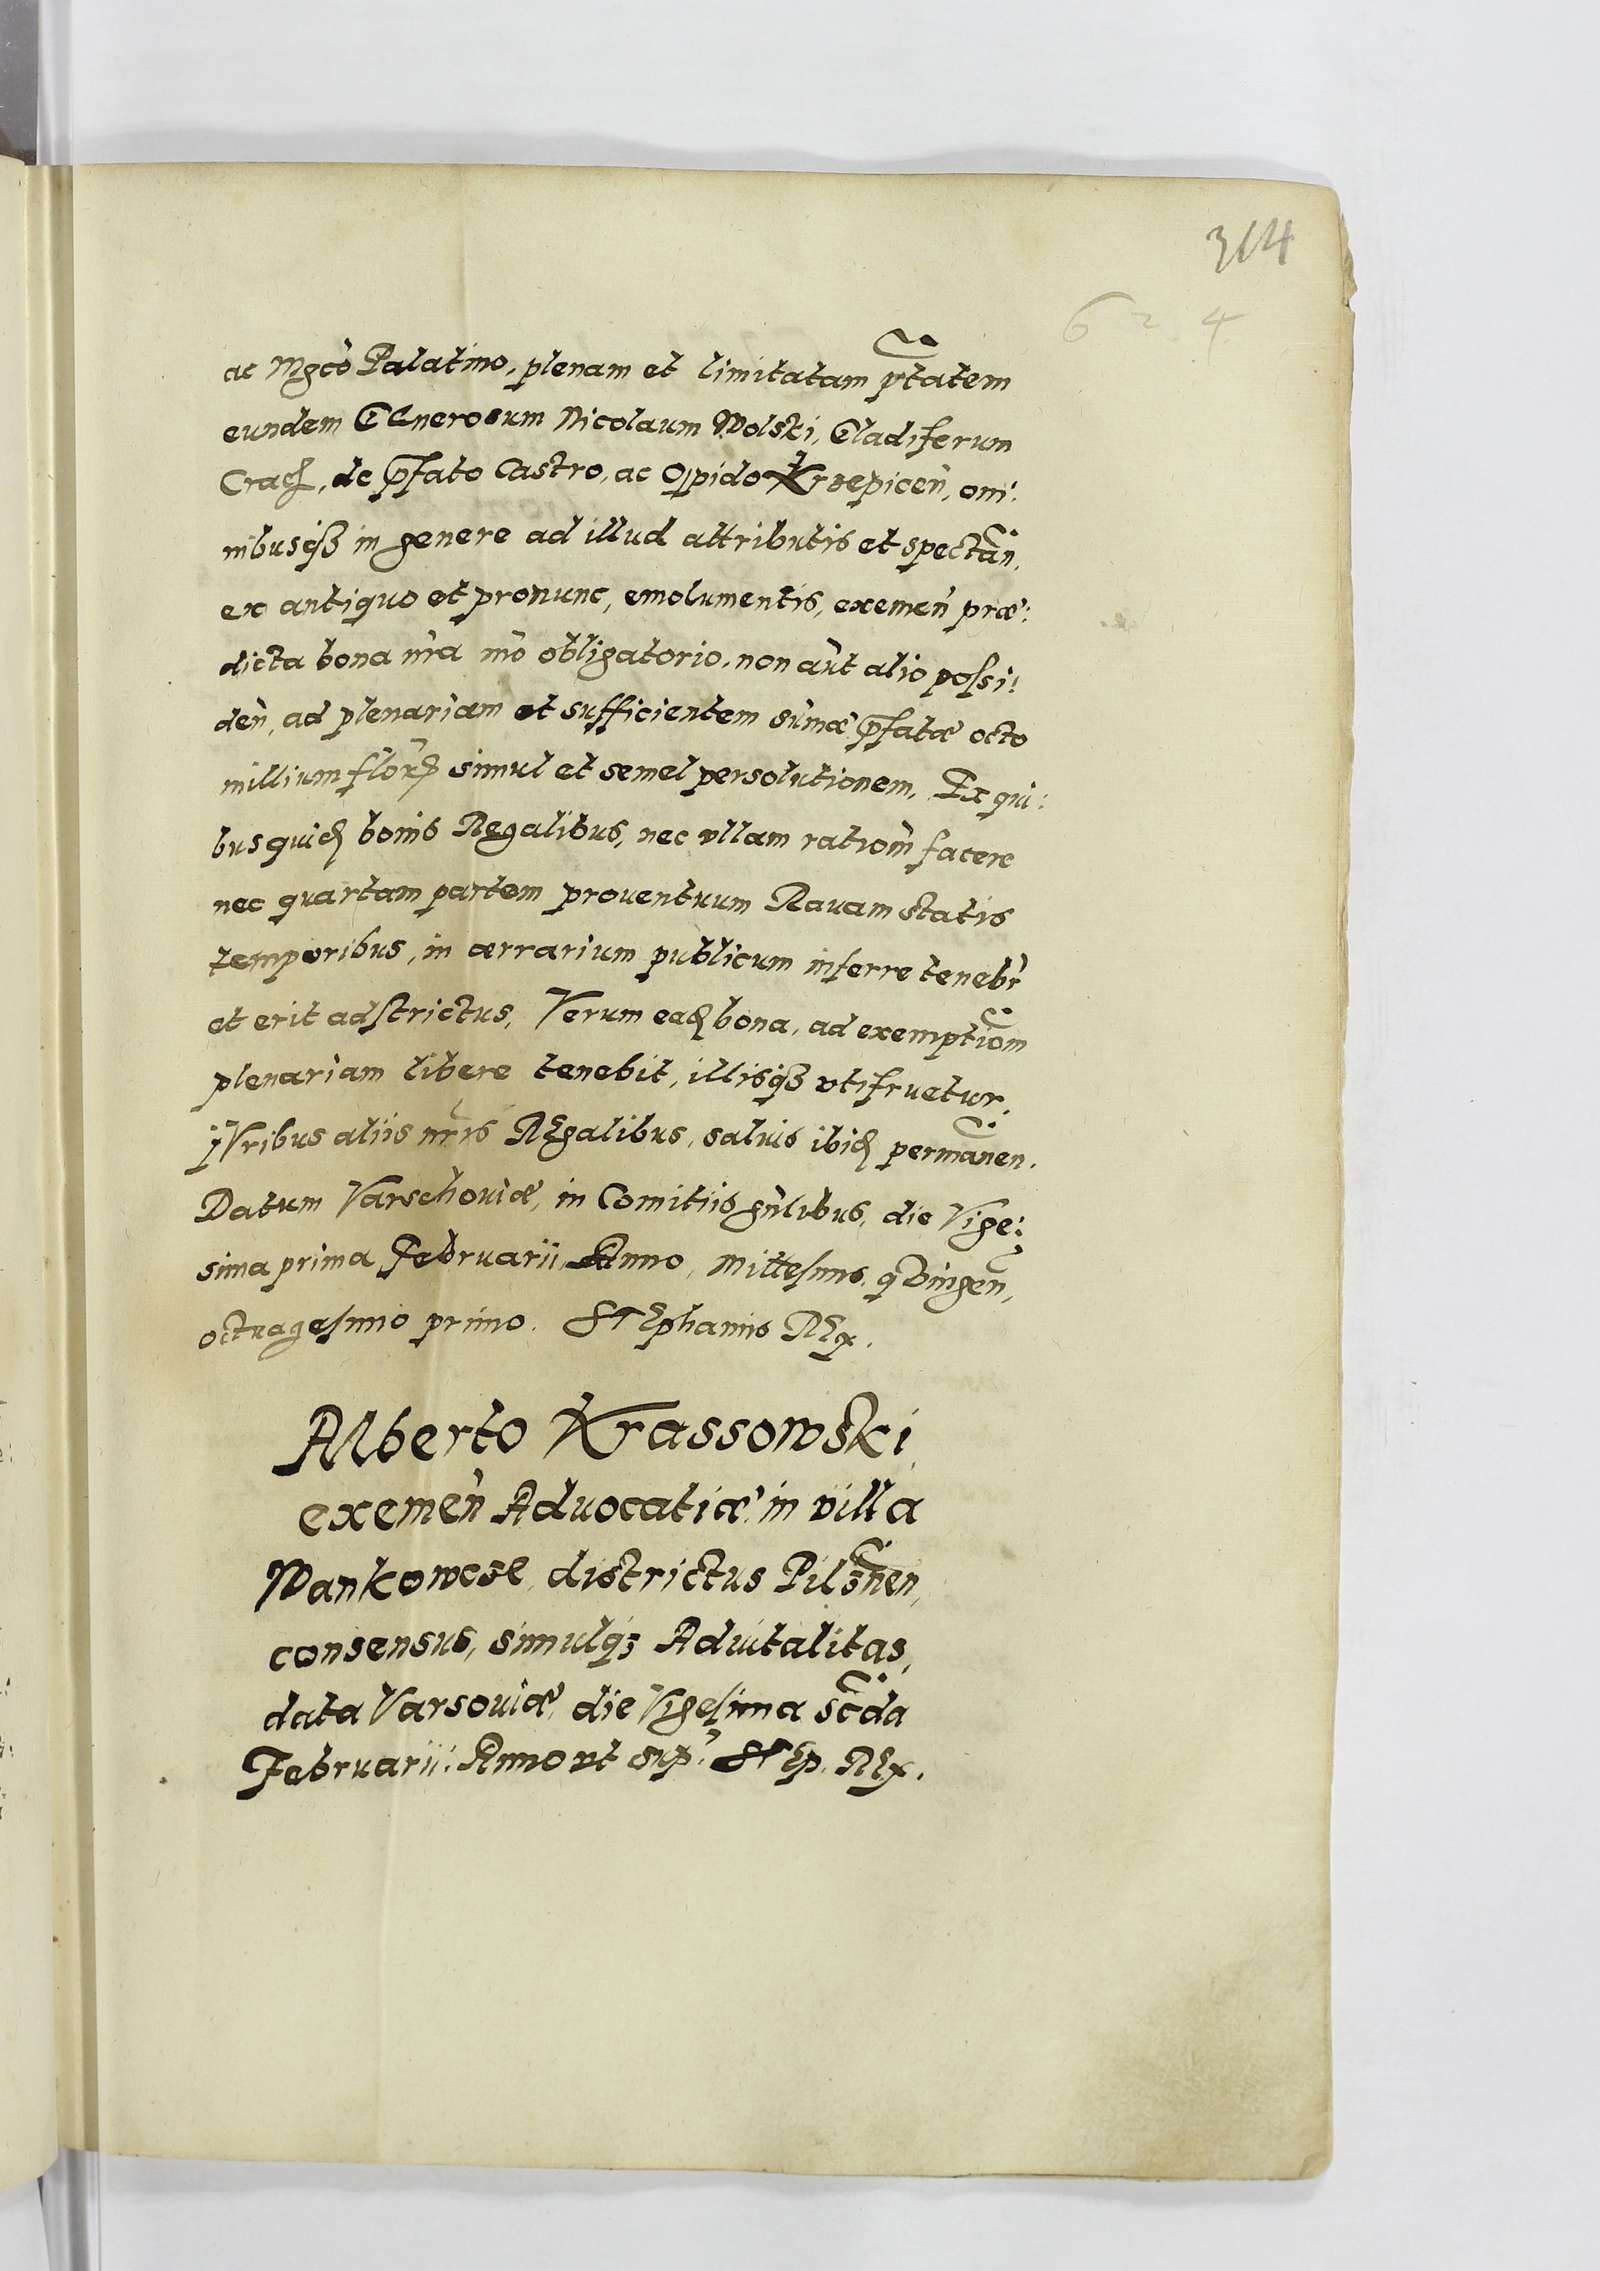 314
6 2 4
ac Mgco Palatino, plenam et limitatam ptatem
eundem GEnerosum Nicolaum Wolski, Gladiferum
Crac, de pfato Castro, ac Oppido Krzepicen, om:
nibusq3 in genere ad illud attributis et spectan,
ex antiquo et pronunc, emolumentis, exemen præ:
dicta bona nra mo obligatorio, non aut alio possi:
den, ad plenariam et sufficientem sumæ pfatæ octo
millium flor simul et semel persolutionem, Ex qui:
bus quid bonis Regalibus, nec vllam rationm facere
nec quartam partem prouentuum Rauam statis
temporibus, in ærrarium publicum inferre tenebr
et erit adstrictus, Verum ead bona, ad exemptiom
plenariam libere tenebit, illisq3 vtifruetur,
jVribus aliis nris REgalibus, saluis ibid permanen.
Datum Varschouiæ, in Comitiis gnlibus, die Vige:
sima prima Februarii, Anno, Millesimo, qVingen,
octuagesimo primo. STEphanus REx.
Alberto Krassowski,
exemen Aduocatiæ in villa
Wankowcze, districtus Pilznen,
consensus, simulq3 Aduitalitas,
data Varsouiæ, die Vigesima scda
Februarii. Anno vt sup. STEp. REx.